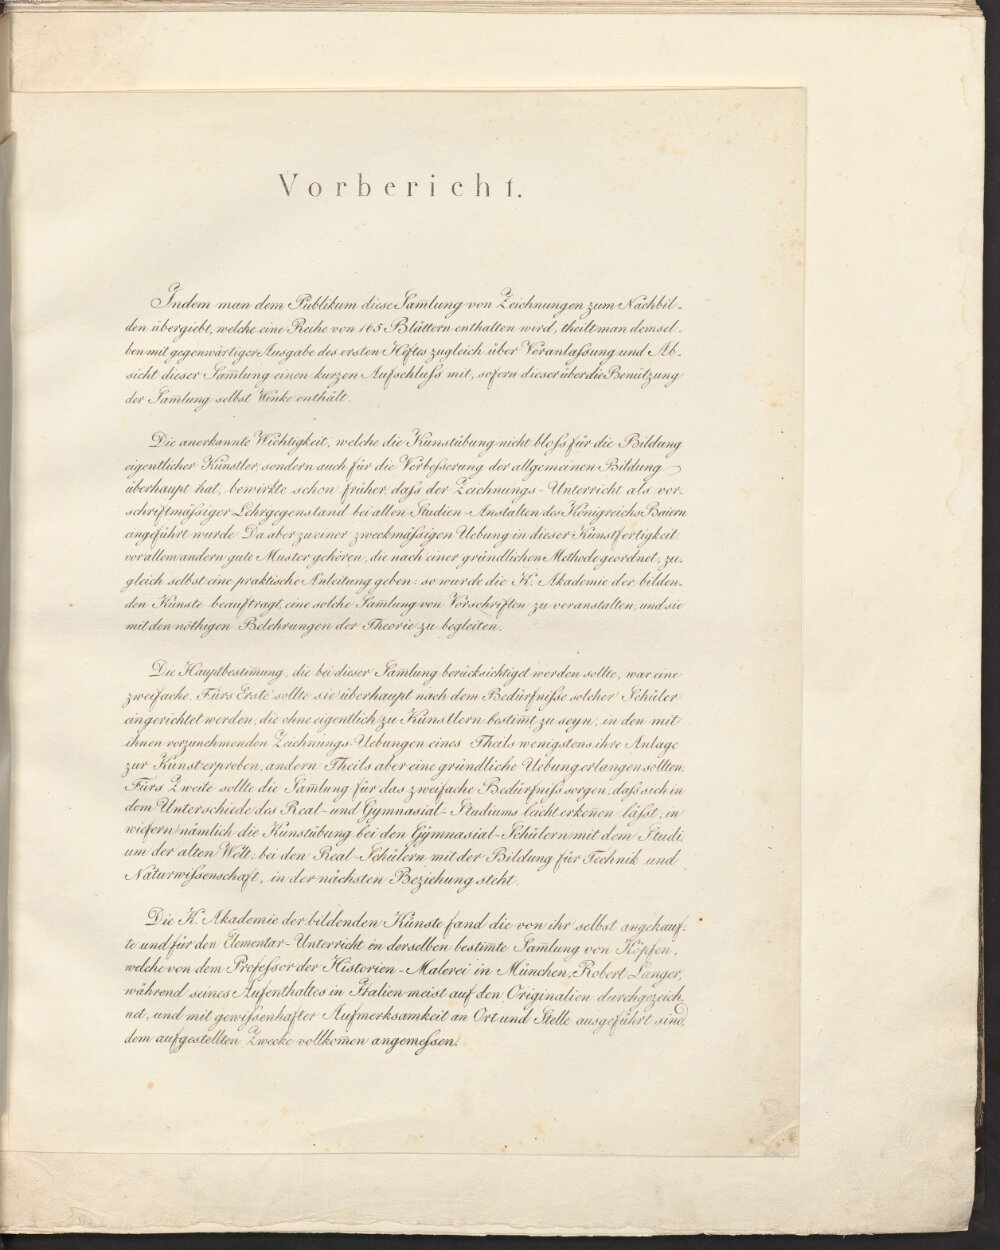 Vorbericht.
Indem man dem Publikum diese Sam̄lung von Zeichnungen zum Nachbil-
den übergiebt, welche eine Reihe von 165 Blättern enthalten wird, theilt man demsel-
ben mit gegenwärtiger Ausgabe des ersten Heftes zugleich über Veranlaſsung und Ab-
sicht dieser Sam̄lung einen kurzen Aufschluſs mit, sofern dieser über die Benützung
der Sam̄lung selbst Winke enthält.
Die anerkannte Wichtigkeit, welche die Kunstübung nicht bloſs für die Bildung
eigentlicher Künstler, sondern auch für die Verbeſserung der allgemeinen Bildung
überhaupt hat, bewirkte schon früher, daſs der Zeichnungs-Unterricht als vor-
schriftmäſsiger Lehrgegenstand bei allen Studien-Anstalten des Königreichs Baiern
angeführt wurde. Da aber zu einer zweckmäſsigen Uebung in dieser Kunstfertigkeit
vor allem andern gute Muster gehören, die nach einer gründlichen Methode geordnet, zu-
gleich selbst eine praktische Anleitung geben: so wurde die K. Akademie der bilden-
den Künste beauftragt, eine solche Sam̄lung von Vorschriften zu veranstalten, und sie
mit den nöthigen Belehrungen der Theorie zu begleiten.
Die Hauptbestim̄ung, die bei dieser Sam̄lung berücksichtiget werden sollte, war eine
zweifache. Fürs Erste sollte sie überhaupt nach dem Bedürfniſse solcher Schüler
eingerichtet werden, die ohne eigentlich zu Künstlern bestim̄t zu seyn, in den mit
ihnen vorzunehmenden Zeichnungs-Uebungen eines Theils wenigstens ihre Anlage
zur Kunst erproben, andern Theils aber eine gründliche Uebung erlangen sollten.
Fürs Zweite sollte die Sam̄lung für das zweifache Bedürfniſs sorgen, daſs sich in
dem Unterschiede des Real- und Gymnasial-Studiums leicht erken̄en läſst; in
wiefern nämlich die Kunstübung bei den Gÿmnasial-Schülern mit dem Studi-
um der alten Welt; bei den Real-Schülern mit der Bildung für Technik und
Naturwiſsenschaft, in der nächsten Beziehung steht.
Die K. Akademie der bildenden Künste fand die von ihr selbst angekauf-
te und für den Elementar-Unterricht in derselben bestim̄te Sam̄lung von Köpfen,
welche von dem Profeſsor der Historien-Malerei in München, Robert Langer,
während seines Aufenthaltes in Italien meist auf den Originalien durchgezeich
net, und mit gewiſsenhafter Aufmerksamkeit an Ort und Stelle ausgeführt sind,
dem aufgestellten Zwecke vollkom̄en angemeſsen.